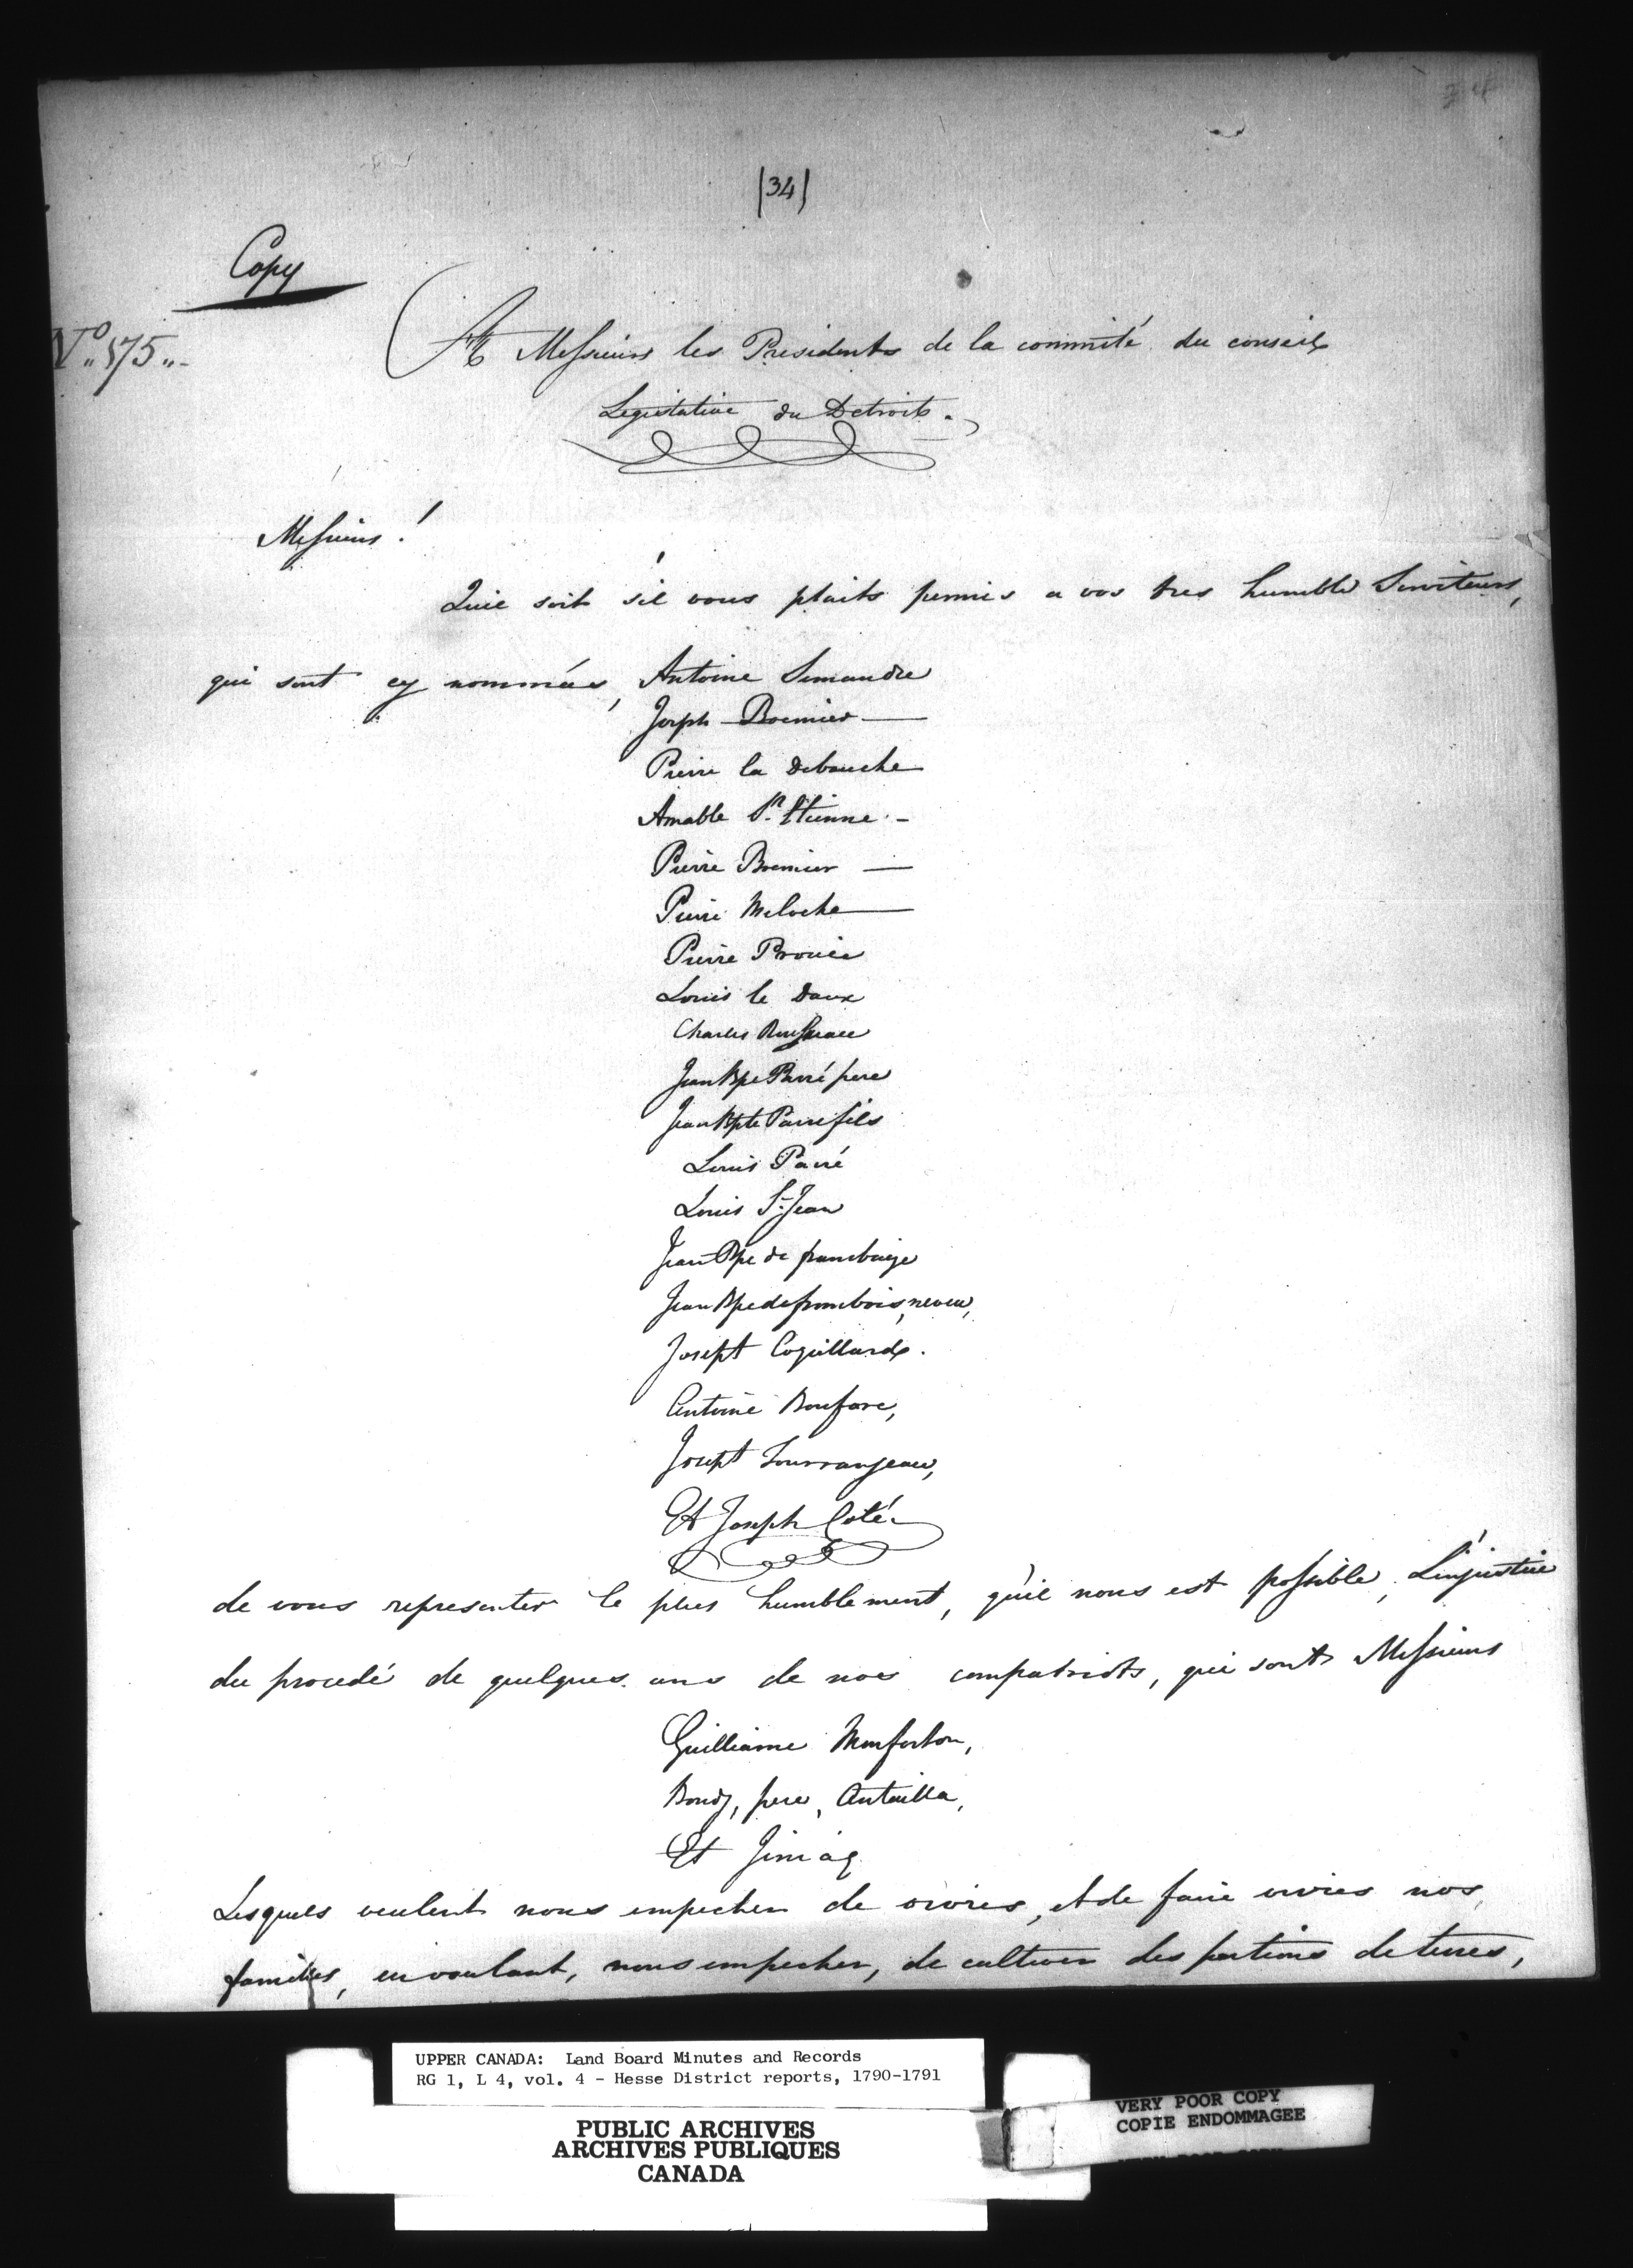 34
(34)
Copy
No. 175
A Messieurs les Presidents de la commité du conseil
Legislative du Detroit.
Messieurs!
Qu'il soit s'il vous plaits permis a vos tres humble Serviteurs,
qui sont cy nommées, Antoine Simandre
Joseph Bernier
Pierre la Debauche
Amable St. Etienne
Pierre Bernier
Pierre Meloche
Pierre Prouie
Louis le Daux
Charles
Jean Bpe Parré pere
Jean Bpte Parre fils
Louis Parré
Louis St. Jean
Jean Bpe de
Jean Bpe de frombois, neveu,
Joseph Coquillard.
Antoine Boufare,
Joseph Livrrangeau,
Et Joseph Coté
de vous representer le plus humblement, qu'il nous est possible, L'injustice
du procedé de quelques uns de nos compatriots, qui sont Messieurs
Guilliame Monforton,
Bondy, pere, Antailla,
Et Jiniaq
Lesquels veulent nous empecher de vivres, et de faire vivres nos
familles, en voulant, nous empecher, de cultiver des portions de terres,
UPPER CANADA: Land Board Minutes and Records
RG 1, L 4, vol. 4 - Hesse District reports, 1790-1791
PUBLIC ARCHIVES
ARCHIVES PUBLIQUES
CANADA
VERY POOR COPY
COPIE ENDOMMAGEE